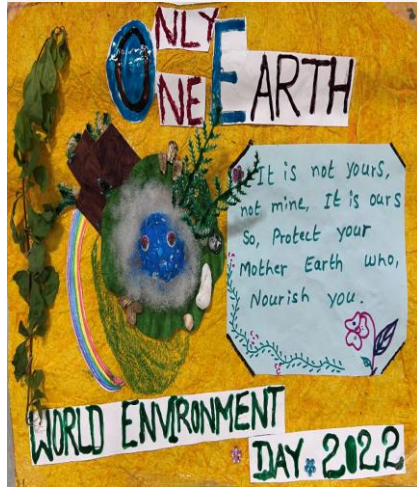 ONLY
ONE EARTH
It is not yours,
not mine, It is ours
So, Protect your
Mother Earth who,
Nourish you.
WORLD ENVIRONMENT
DAY. 2022